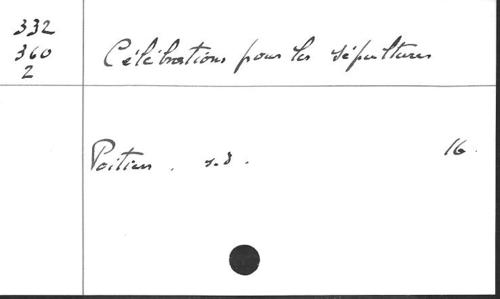 332
360
2
Célébrations pour les sépultures
Poitiers . s.d . 16.